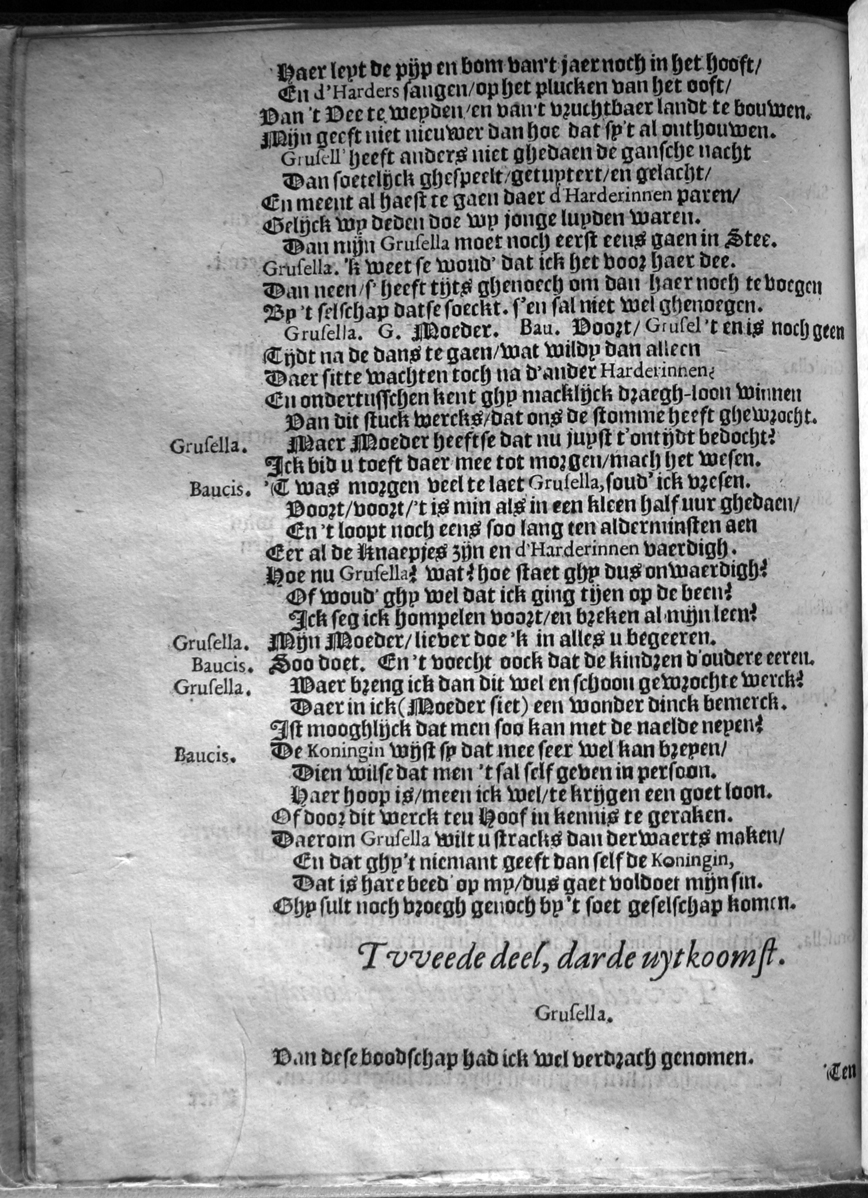 Haer leyt de pijp en bom van't jaer noch in het hooft/
En d'Harders sangen/op het plucken van het ooft/
Van 't Vee te weyden/en van't vruchtbaer landt te bouwen.
Mijn geeft niet nieuwer dan hoe dat sy't al onthouwen.
Grusell' heeft anders niet ghedaen de gansche nacht
Dan soetelijck ghespeelt/getuytert/en gelacht/
En meent al haest te gaen daer d'Harderinnen paren/
Gelijck wy deden doe wy jonge luyden waren.
Dan mijn Grusella moet noch eerst eens gaen in Stee.
Grusella. 'k weet se woud' dat ick het voor haer dee.
Dan neen/s' heeft tijts ghenoech om dan haer noch te voegen
By 't selschap datse soeckt. s'en sal niet wel ghenoegen.
Grusella. G. Moeder. Bau. Voort/ Grusel 't en is noch geen
Tijdt na de dans te gaen/wat wildy dan alleen
Daer sitte wachten toch na d'ander Harderinnen?
En ondertusschen kent ghy macklijck draegh-loon winnen
Van dit stuck wercks/dat ons de stomme heeft ghewrocht.
Grusella. Maer Moeder heeftse dat nu juyst t'ontijdt bedocht?
Ick bid u toeft daer mee tot morgen/mach het wesen.
Baucis. 'T was morgen veel te laet Grusella, soud' ick vresen.
Voort/voort/'t is min als in een kleen half uur ghedaen/
En 't loopt noch eens soo lang ten alderminsten aen
Eer al de Knaepjes zijn en d'Harderinnen vaerdigh.
Hoe nu Grusella? wat? hoe staet ghy dus onwaerdigh?
Of woud' ghy wel dat ick ging tijen op de been?
Ick seg ick hompelen voort/en breken al mijn leen?
Grusella. Mijn Moeder/liever doe 'k in alles u begeeren.
Baucis. Soo doet. En 't voecht oock dat de kindren d'oudere eeren.
Grusella. Maer breng ick dan dit wel en schoon gewrochte werck?
Daer in ick (Moeder siet) een wonder dinck bemerck.
Ist mooghlijck dat men soo kan met de naelde neyen?
Baucis. De Koningin wijst sy dat mee seer wel kan breyen/
Dien wilse dat men 't sal self geven in persoon.
Haer hoop is/meen ick wel/te krijgen een goet loon.
Of door dit werck ten Hoof in kennis te geraken.
Daerom Grusella wilt u stracks dan derwaerts maken/
En dat ghy't niemant geeft dan self de Koningin,
Dat is hare beed' op my/dus gaet voldoet mijn sin.
Ghy sult noch vroegh genoch by 't soet geselschap komen.
Tvveede deel, darde uytkoomst.
Grusella.
Van dese boodschap had ick wel verdrach genomen.
Ten